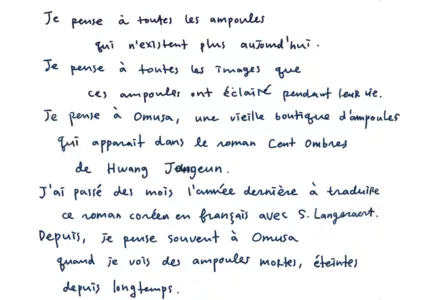 Je pense à toutes les ampoules
qui n'existent plus aujourd'hui.
Je pense à toutes les images que
ces ampoules ont éclairé pendant leur vie.
Je pense à Omusa, une vieille boutique d'ampoules
qui apparait dans le roman Cent Ombres
de Hwang Jungeun.
J'ai passé des mois l'année dernière à traduire
ce roman coréen en français avec S. Langeraert.
Depuis, je pense souvent à Omusa
quand je vois des ampoules mortes, éteintes
depuis longtemps.